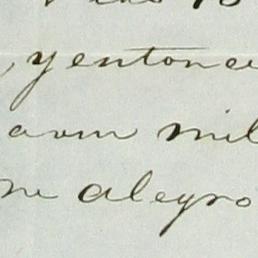 , yentonce
avm mil
me alegro